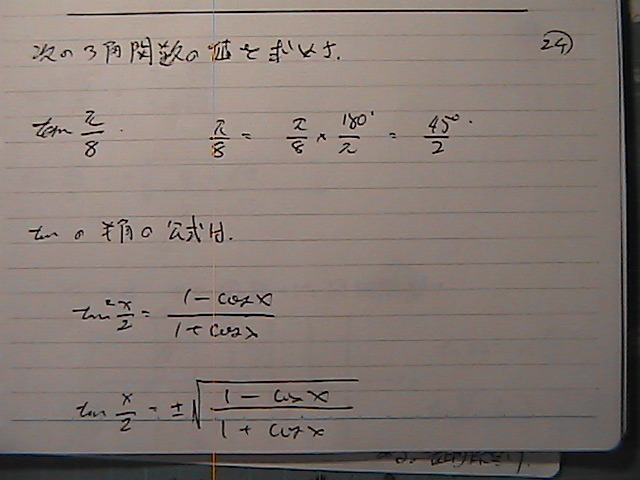 次の3角関数の値を求めよ. 24
tan π/8. π/8 = π/8 × 180°/π = 45°/2.
tan の半角の公式は.
tan² x/2 = (1 - cos x)/(1 + cos x)
tan x/2 = ±√((1 - cos x)/(1 + cos x))